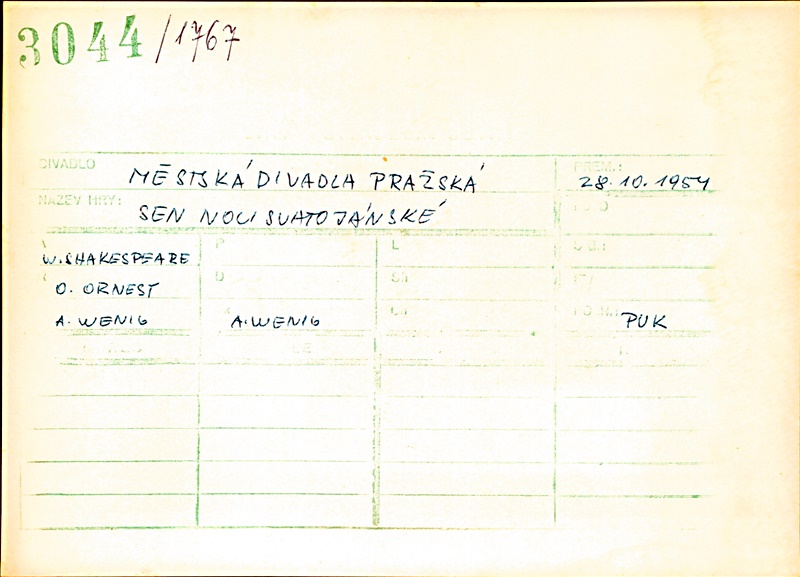 3044/1767
DIVADLO MĚSTSKÁ DIVADLA PRAŽSKÁ PREM.: 28.10.1954
NÁZEV HRY: SEN NOCI SVATOJÁNSKÉ
P L
W. SHAKESPEARE
D Sh
O. ORNEST
A. WENIG A. WENIG PUK